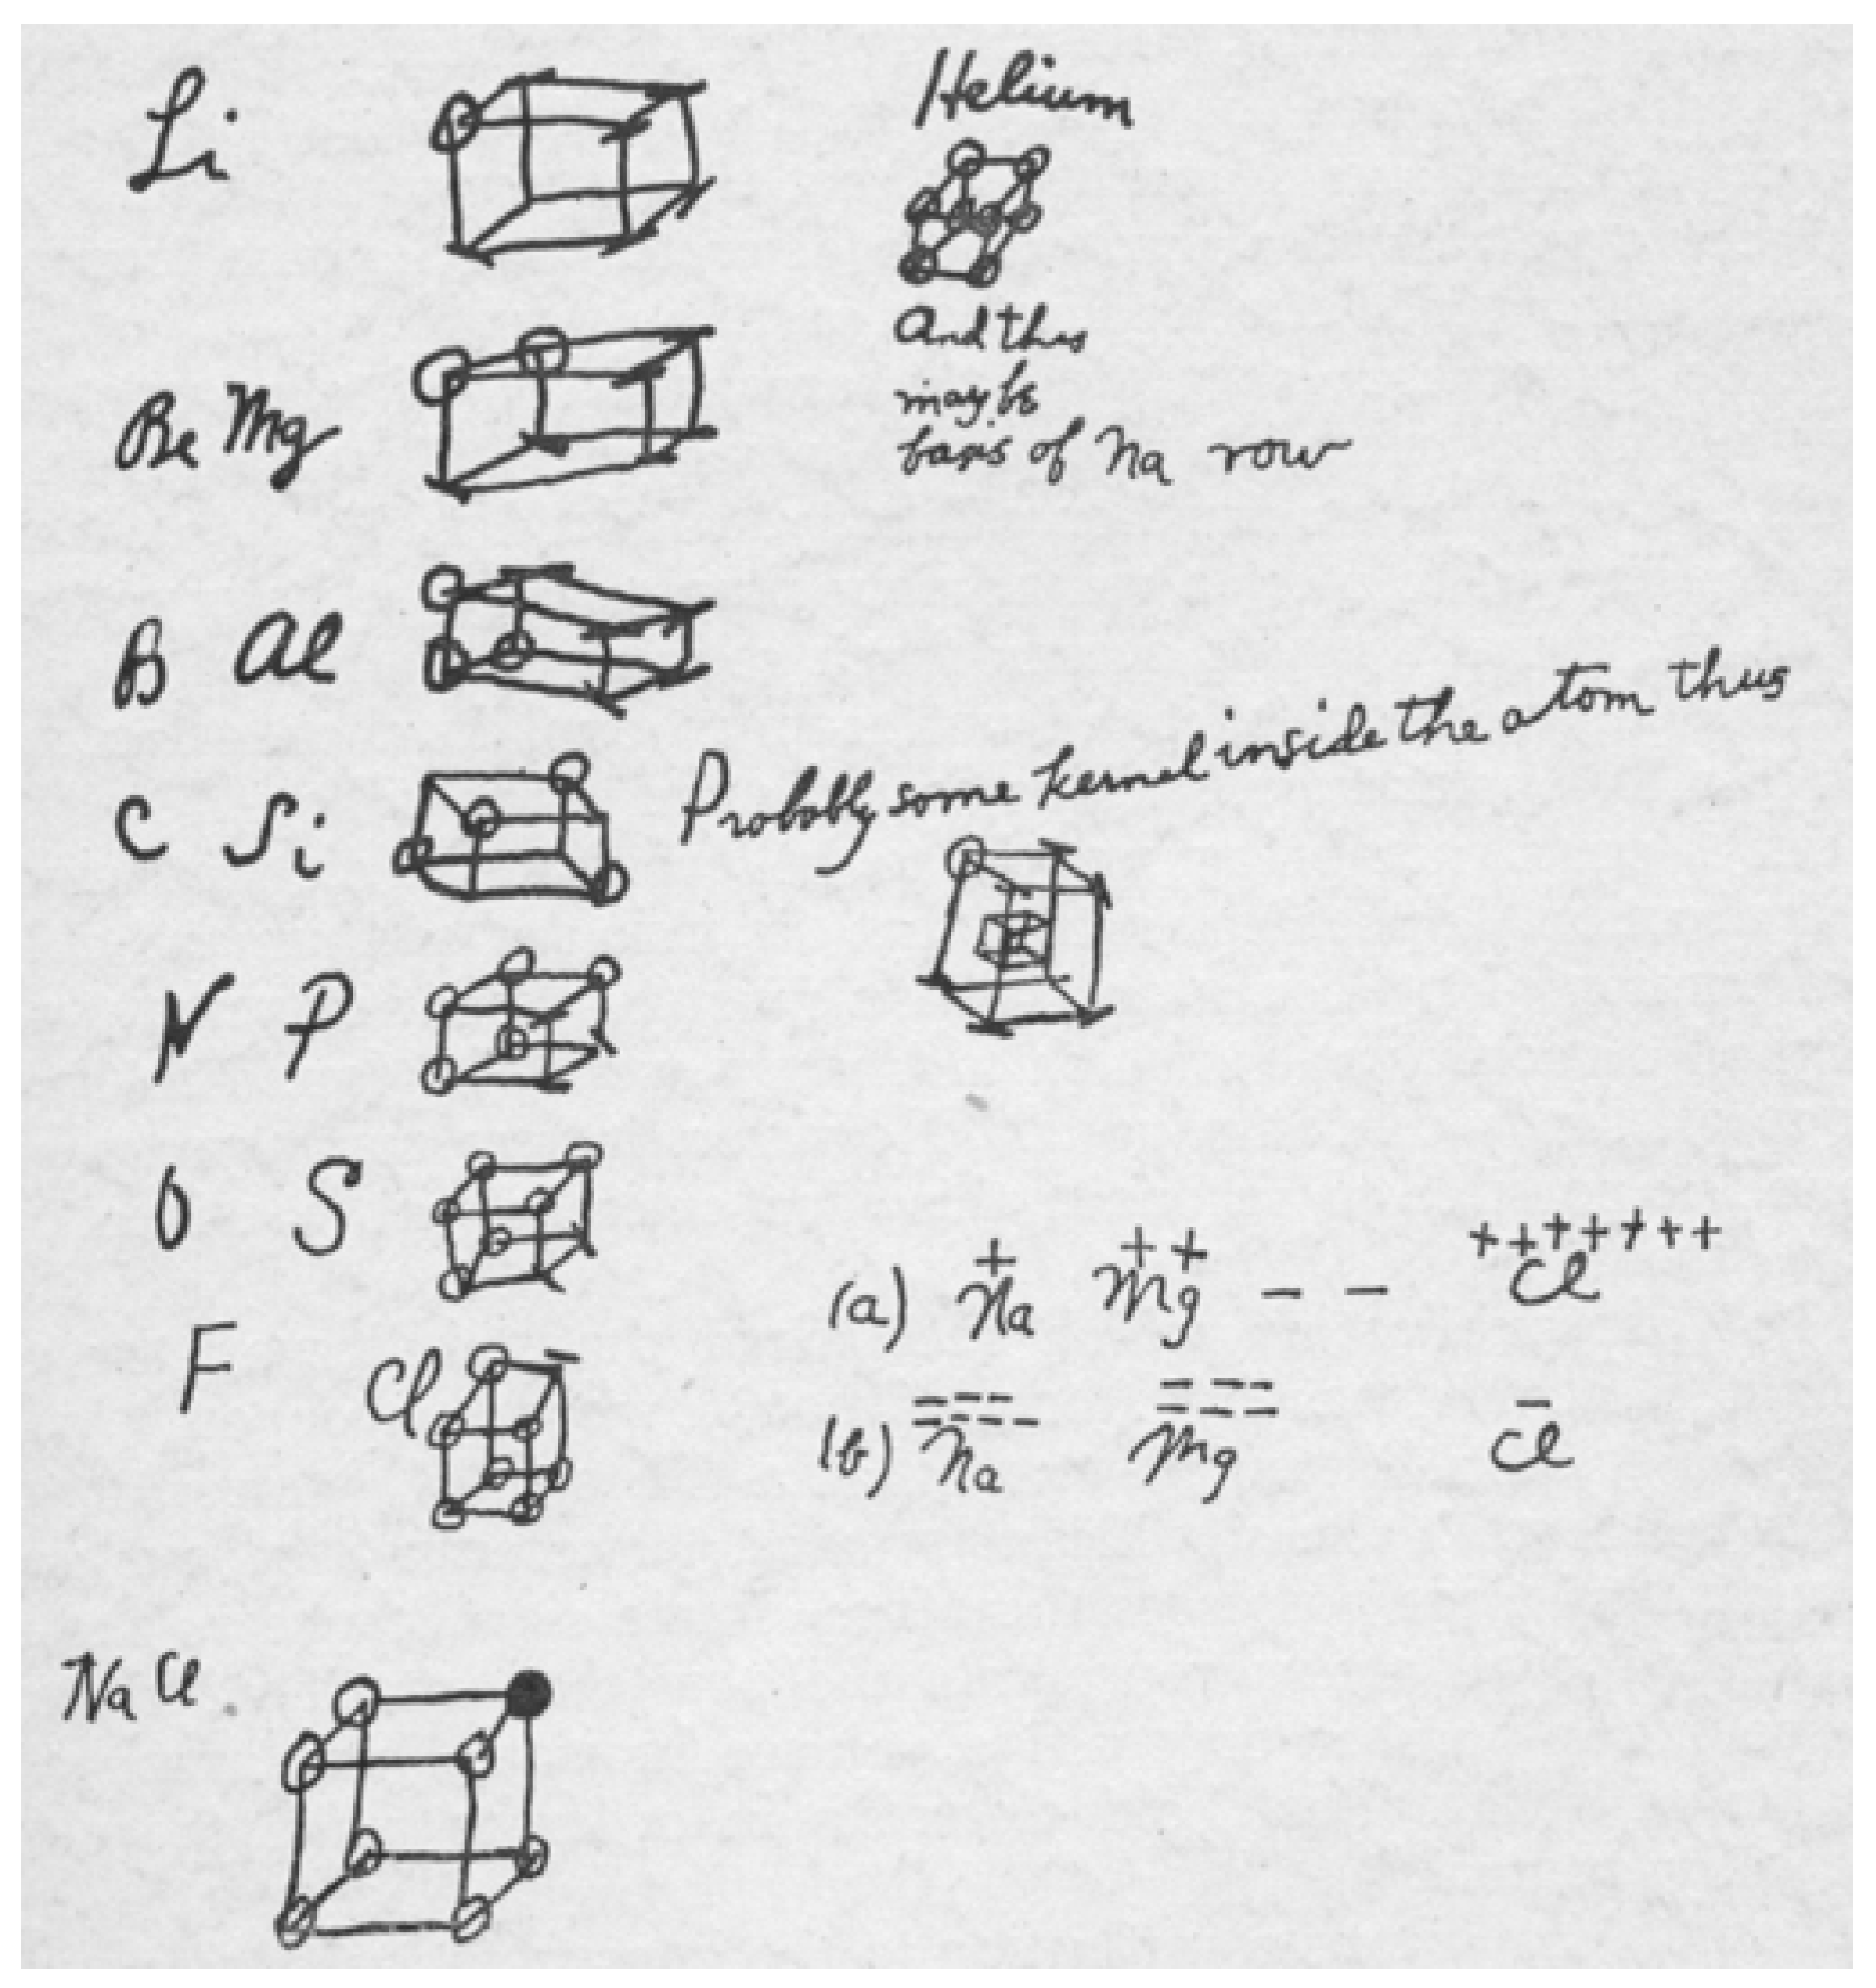 Li
Helium
And this
may be
basis of Na row
Be Mg
B Al
Probably some kernel inside the atom thus
C Si
N P
O S
(a) + Na ++ Mg - - +++++++ Cl
F Cl
(b) ------- Na ------ Mg - Cl
NaCl.